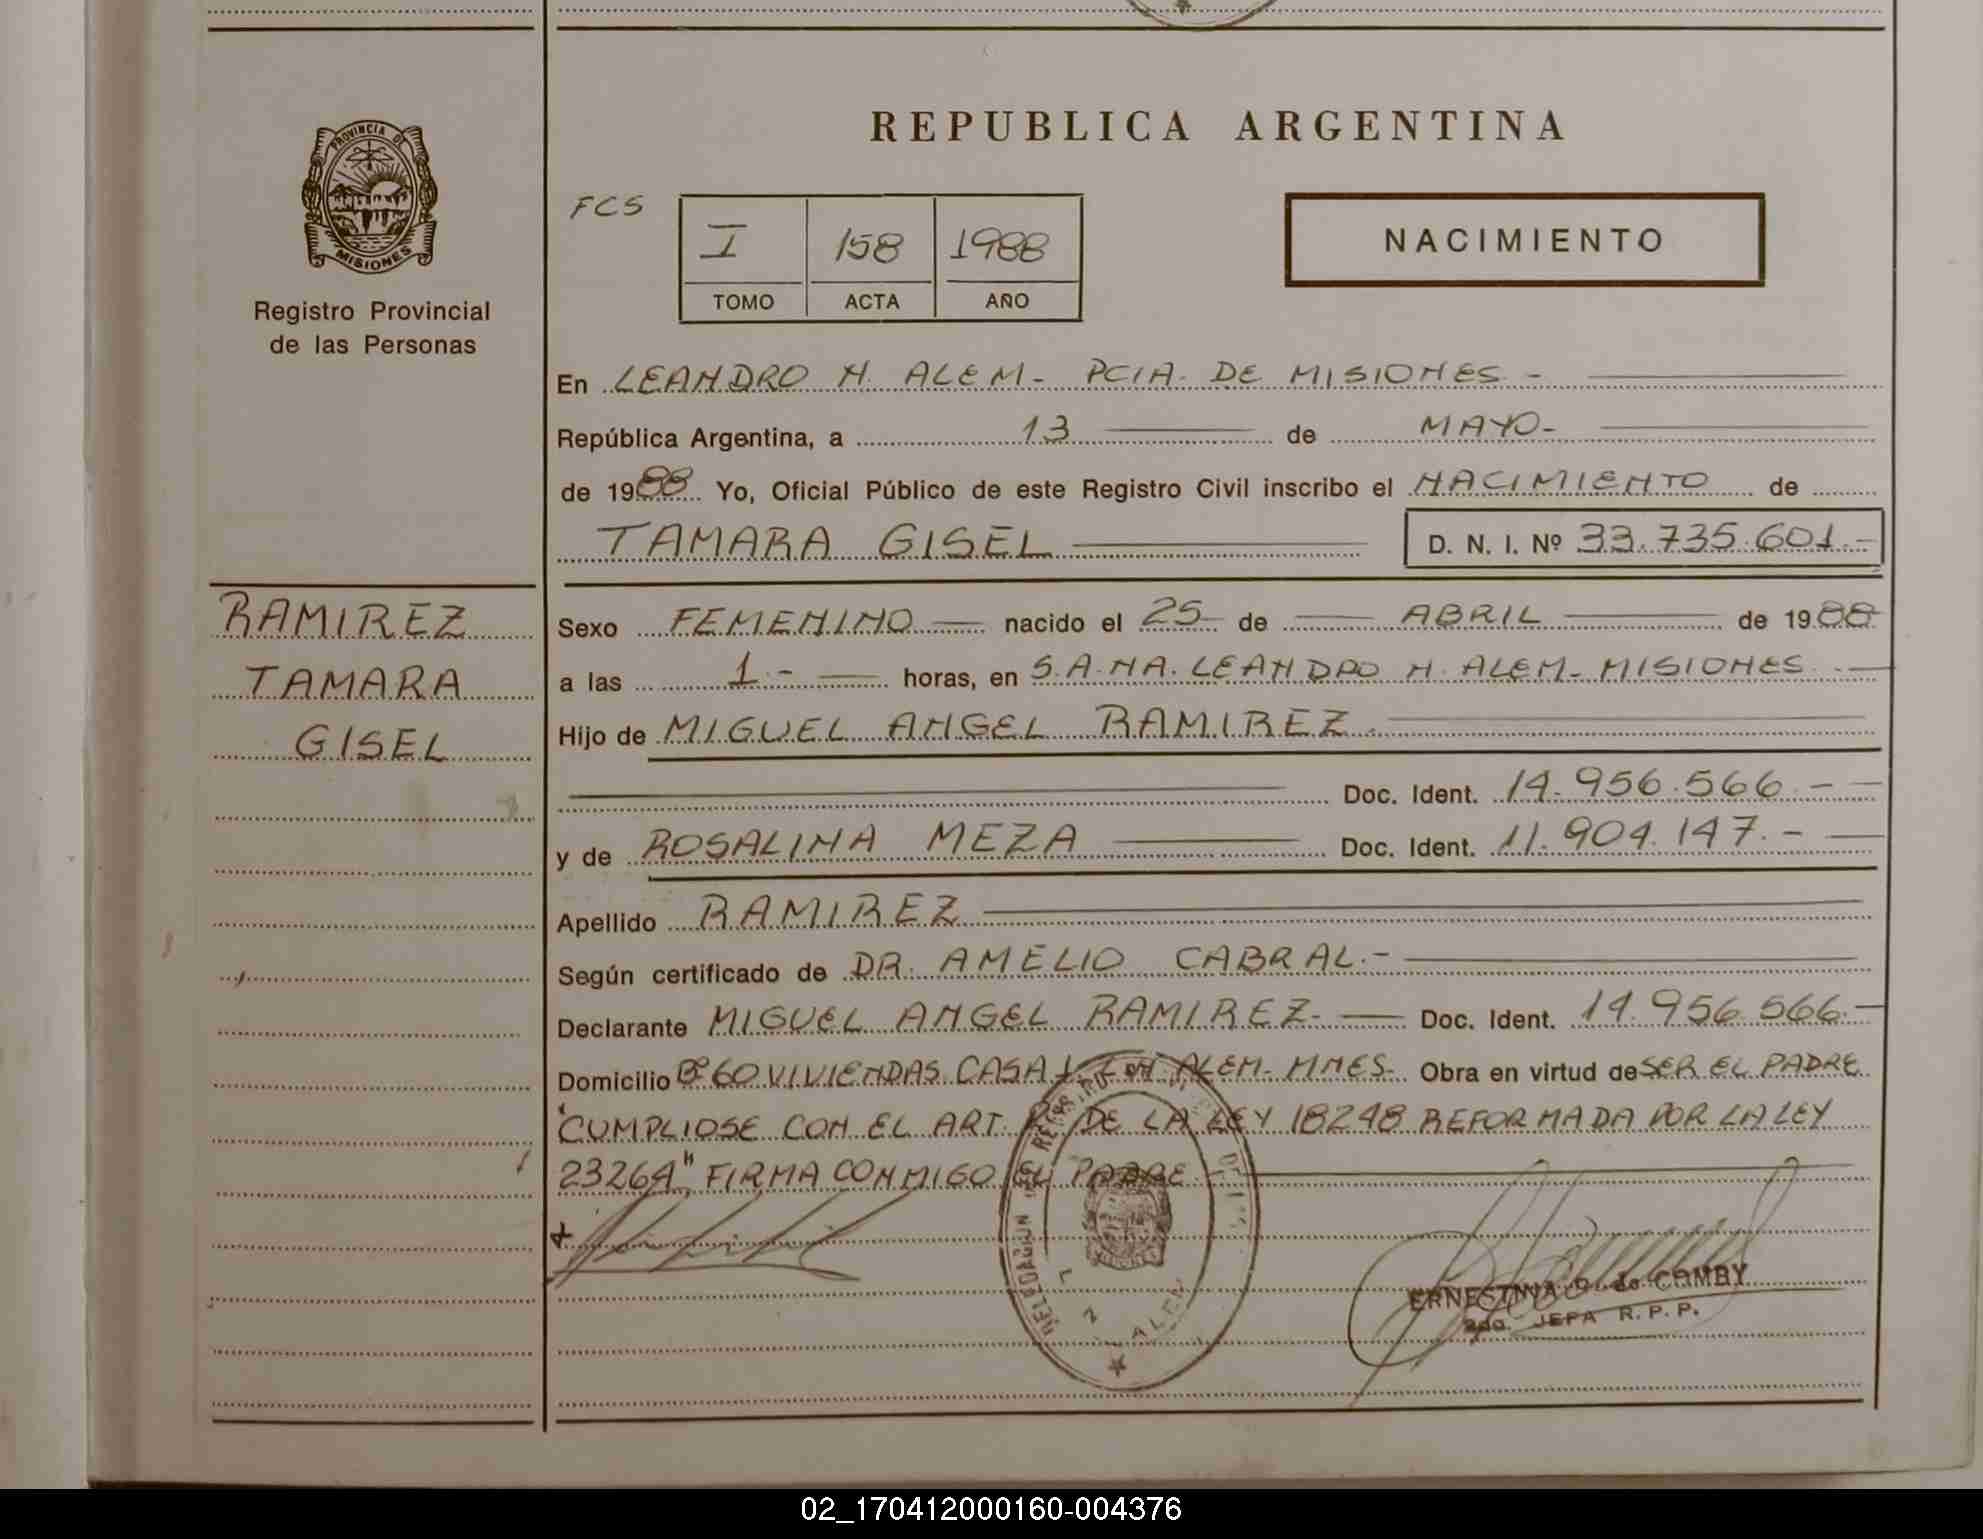 PROVINCIA DE
MISIONES
Registro Provincial
de las Personas
REPUBLICA ARGENTINA
FCS
I 158 1988
TOMO ACTA AÑO
NACIMIENTO
En LEANDRO N. ALEM - PCIA. DE MISIONES -
República Argentina, a 13 de MAYO-
de 1988 Yo, Oficial Público de este Registro Civil inscribo el NACIMIENTO de
TAMARA GISEL D. N. I. Nº 33.735.601.-
RAMIREZ
TAMARA
GISEL
Sexo FEMENINO nacido el 25 de ABRIL de 1988
a las 1.- horas, en S.A.NA. LEANDRO N. ALEM- MISIONES
Hijo de MIGUEL ANGEL RAMIREZ.
Doc. Ident. 14.956.566.-
y de ROSALINA MEZA Doc. Ident. 11.904.147.-
Apellido RAMIREZ
Según certificado de DR. AMELIO CABRAL.-
Declarante MIGUEL ANGEL RAMIREZ- Doc. Ident. 14.956.566.-
Domicilio Bº 60 VIVIENDAS CASA ALEM- MNES- Obra en virtud de SER EL PADRE
"CUMPLIOSE CON EL ART. DE LA LEY 18248 REFORMADA POR LA LEY
23264" FIRMA CONMIGO EL PADRE
ALEM
ERNESTINA G. de COMBY
2do. JEFA R. P. P.
02_170412000160-004376